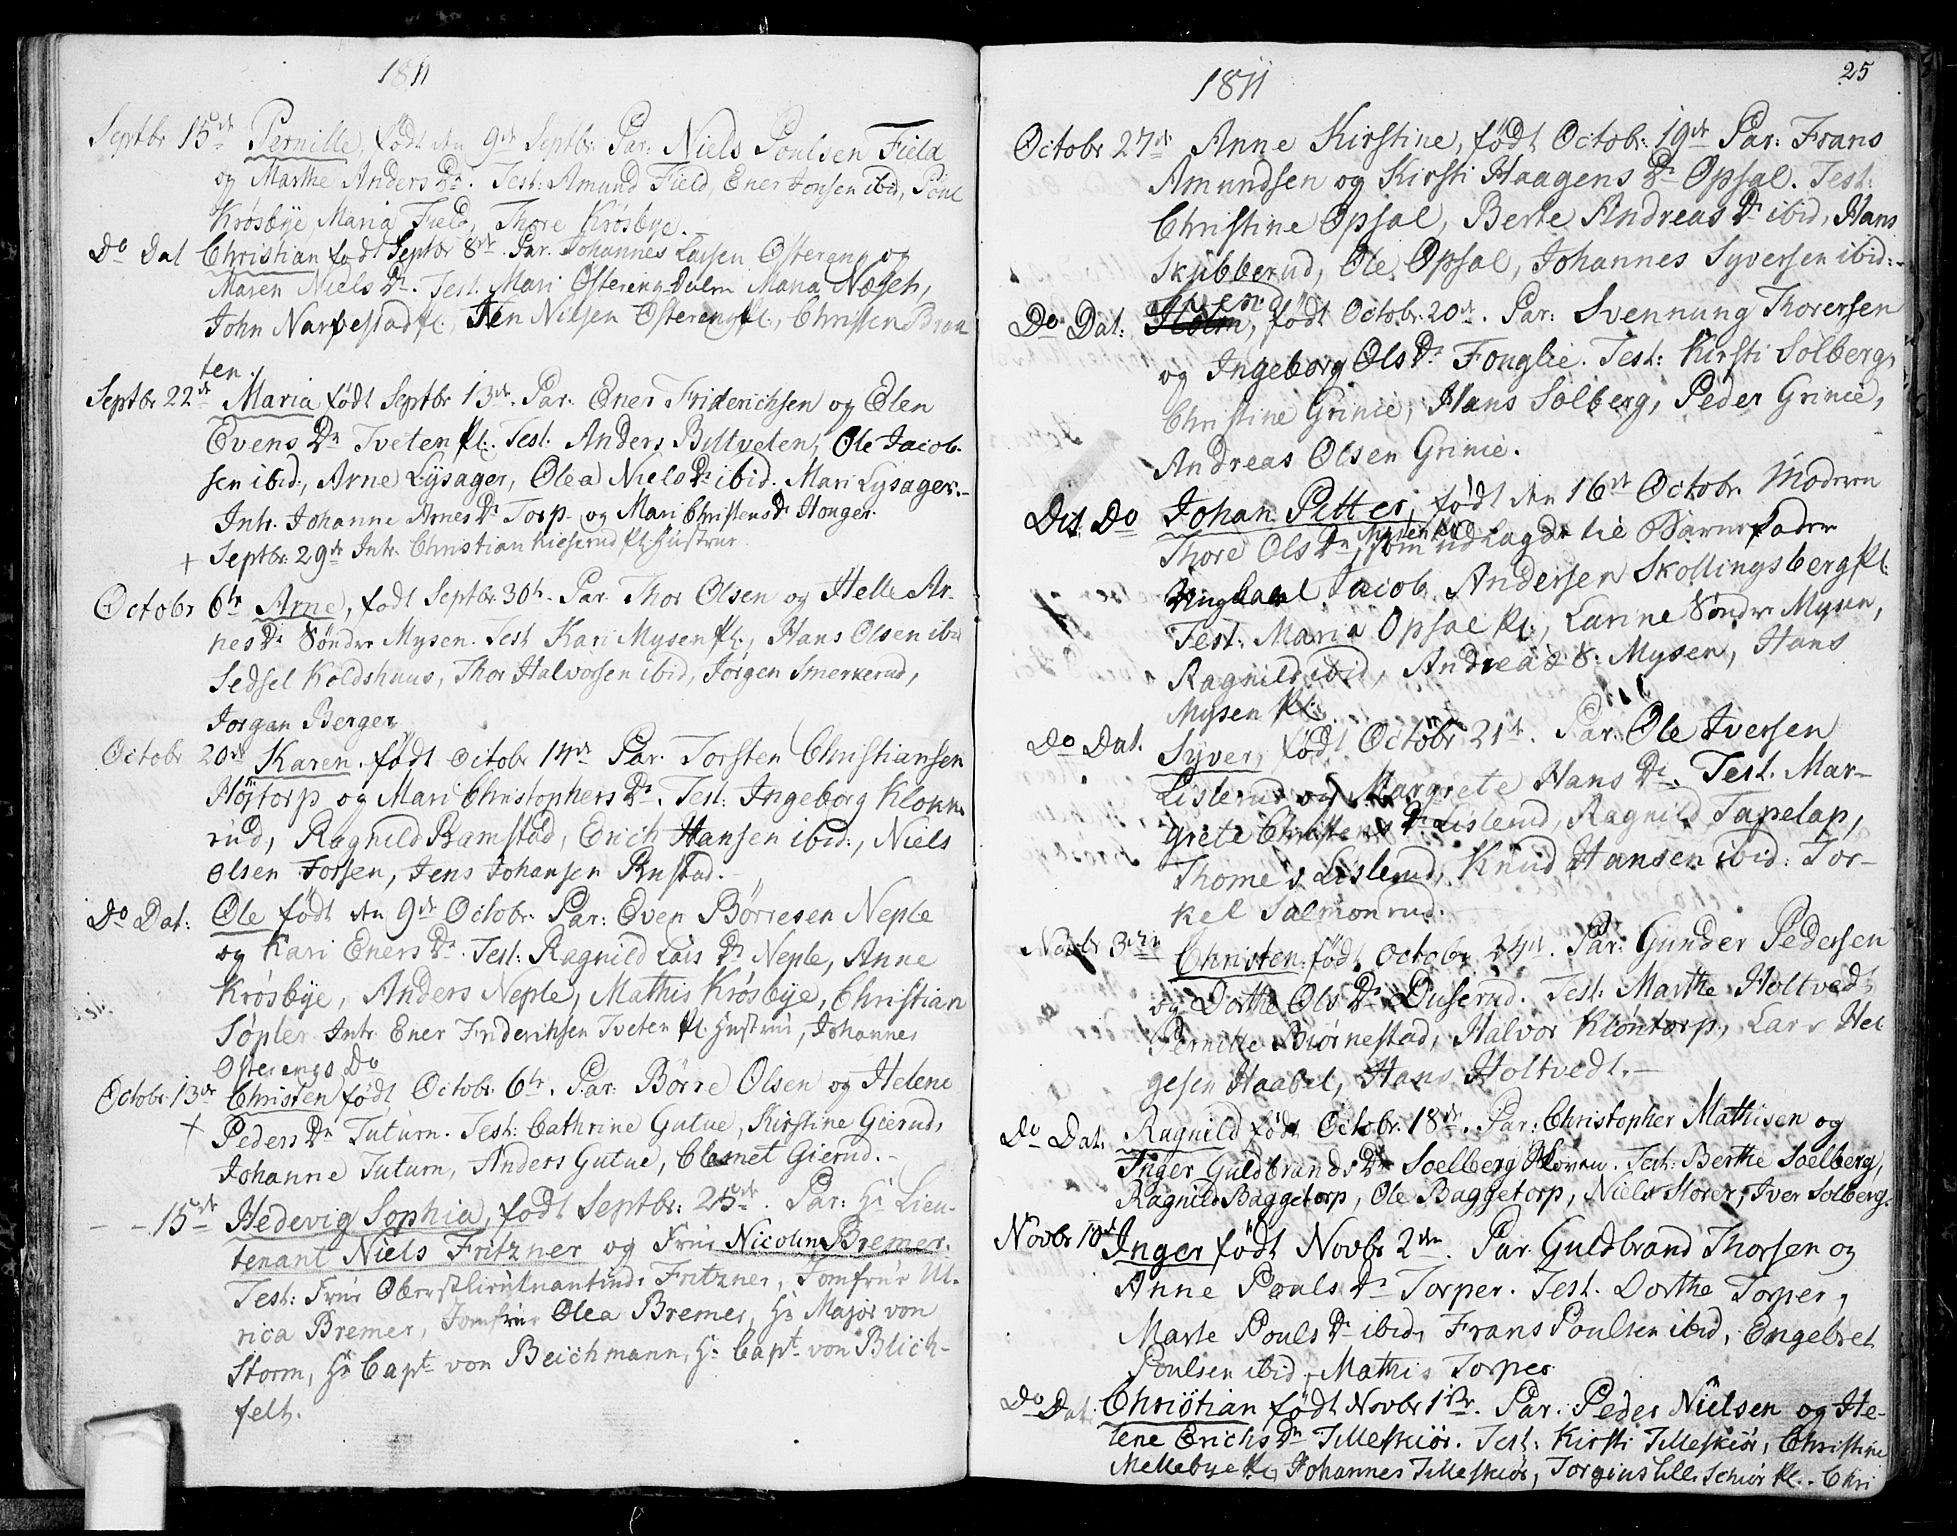 1811
Septbr 15de Pernille, født den 9de Septbr. Par: Niels Poulsen Field
og Marthe Anders Dr. Test: Amund Field, Ener Jonsen ibid, Poul
Krøsbÿe Maria Field, Thore Krøsbye.
Do Dat Christian født Septbr 8de. Par. Johannes Larsen Ostereng og
Maren Niels Dr. Test. Mari Ostereng Maria Næseh,
John Narvestad pl., Jen Nilsen Ostereng pl., Christen Braa
ten.
Septbr 22de Maria født Septbr 13de. Par. Ener Friderichsen og Elen
Evens Dr Tveten Pl. Test. Anders Biltveten, Ole Jacob-
sen ibid, Arne Lÿsager, Olea Niels Dr ibid. Mari Lysager.-
Intr. Johanne Arnes Dr Torp og Mari Christens Dr Honger.
+ Septbr. 29de Intr. Christian Pl. Hustrue
Octobr 6te Arne, født Septbr. 30te. Par. Thor Olsen og Helle Ar-
nes Dr Søndre Mysen. Test Kari Mysen Pl., Hans Olsen ibid
Sedsel Koldshuus, Thor Halvorsen ibid, Jorgen Smerkerud,
Jorgan Berger
Octobr 20de Karen. født Octobr 14de Par. Torsten Christiansen
Højtorp og Mari Christophers Dr. Test: Ingeborg Klokke
rud, Ragnild Ramstad, Erich Hansen ibid., Niels
Olsen Fossen, Jens Johansen Rustad.
Do Dat: Ole født den 9de Octobr. Par: Even Børresen Neple
og Kari Eners Dr. Test: Ragnild Lars Dr Neple, Anne
Krøsbÿe, Anders Neple, Mathis Krøsbÿe, Christian
Søpler Intr. Ener Friderichsen Tveten Pl. Hustrue, Johannes
Osterengs Do
Octobr. 13de Christen født Octobr. 6te. Par: Børre Olsen og Helene
+ Peders Dr Tuturn. Test: Cathrine Gutue, Kirstine Gierud,
Johanne Tuturn, Anders Gutue, Clemet Gierud.-
- - 15de Hedevig Sophia, født Septbr: 25de. Par: Hr Lieu-
tenant Niels Fritzner og Frue Nicoline Bremer.
Test: Frue Oberstlieutnantinde Fritzner, Jomfrue Ul-
rica Bremer, Jomfrue Olea Bremer, Hr Major von
Storm, Hr Capt von Beichmann, Hr Capt von Blich-
felt.
1811
25
Octobr 27de Anne Kirstine, født Octobr. 19de Par: Frans
Amundsen og Kirsti Haagens Dr Opsal. Test:
Christine Opsal, Berte Andreas Dr ibid, Hans
Skibberud, Ole Opsal, Johannes Syversen ibid.-
Svend
Do Dat: født Octobr. 20de. Par: Svennung Thorersen
og Ingeborg Ols Dr Fouglie. Test: Kirsti Solberg,
Christine Grinie, Hans Solberg, Peder Grinie,
Andreas Olsen Grinie.
Dit Do Johan Petter, født den 16de Octobr. Moderen
Thore Ols Dr, som udlagde til Barnefader
Ungkarl Jacob Andersen Skollingsberg Pl.
Test: Maria Opsal Pl., Larine Søndre Mysen,
Ragnild ibid, Andreas S: Mysen, Hans
Mysen Pl.
Do Dat. Syver, født Octobr 21de. Par: Ole Iversen
Lislerud og Margrete Hans Dr. Test. Mar-
grete Christens Dr Lislerud, Ragnild Tapelap,
Thomes Lislerud, Knud Hansen ibid: Tor-
kel Salmonrud.
Novbr 3die Christen født Octobr 24de. Par: Gunder Pedersen
og Dorthe Ols Dr Duserud. Test: Marthe Holtvedt
Pernille Biørnestad, Halvor Kløntorp, Lars Hel
gesen Haabel, Hans Holtvedt.-
Do Dat: Ragnild født Octobr. 18de. Par: Christopher Mathisen og
Inger Guldbrands Dr Soelberg. Test: Berthe Soelberg,
Ragnild Baggetorp, Ole Baggetorp, Niels Storer, Iver Solberg.
Novbr 10de Inger født Novbr 2den. Par Guldbrand Thorsen og
Anne Pouls Dr Torper. Test. Dorthe Torper,
Marte Pouls Dr ibid, Frans Poulsen ibid, Engebret
Poulsen ibid, Mathis Torper
Do Dat. Christian født Novbr 1ste. Par. Peder Nielsen og He-
lene Erichs Dr Tilleskiør. Test: Kirsti Tilleskiør, Christine
Mellebye Pl, Johannes Tilleskiør, Jorgius Pl. Chri